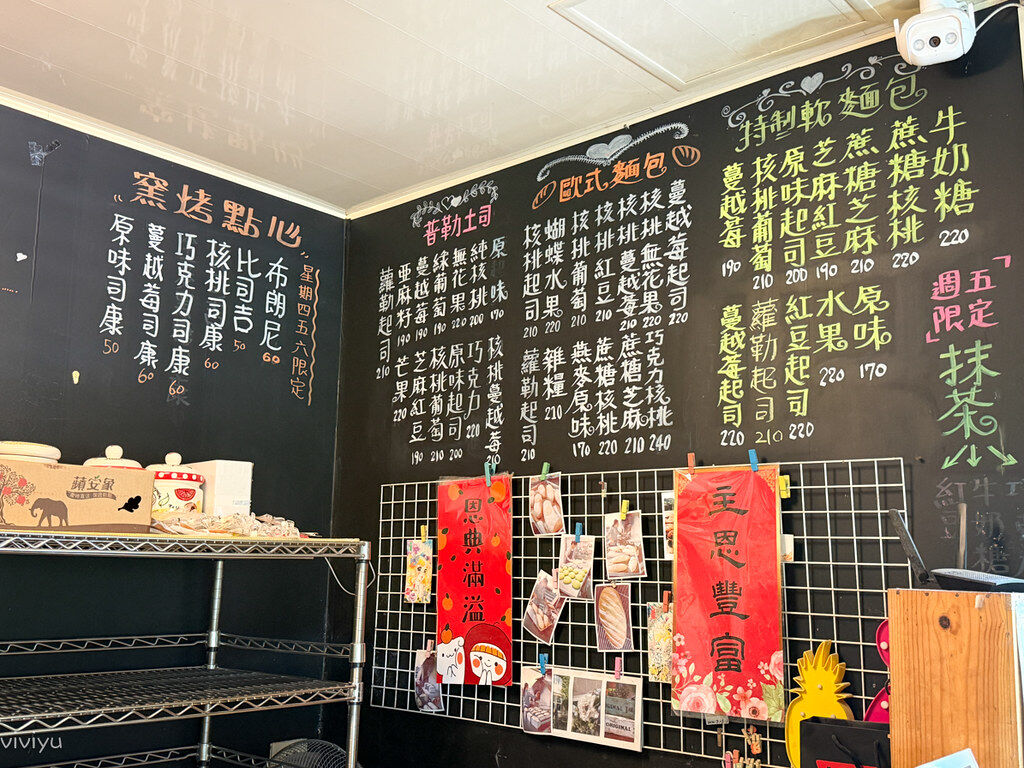 窯烤點心
星期四五六限定
布朗尼 60
比司吉 50
核桃司康 60
巧克力司康 60
蔓越莓司康 60
原味司康 50
普勒土司
原味 170
純核桃 200
無花果 220
綜葡萄 190
蔓越莓 190
亞麻籽 190
蘿勒起司 210
核桃蔓越莓 210
巧克力 220
原味起司 200
核桃葡萄 210
芝麻紅豆 190
芒果 220
歐式麵包
蔓越莓起司 220
核桃無花果 220
核桃蔓越莓 210
核桃紅豆 210
核桃葡萄 210
蝴蝶水果 220
核桃起司 210
巧克力核桃 240
蔗糖芝麻 210
蔗糖核桃 220
燕麥原味 170
雜糧 210
蘿勒起司 210
特制軟麵包
牛奶糖 220
蔗糖核桃 220
蔗糖芝麻 210
芝麻紅豆 190
原味起司 200
核桃葡萄 210
蔓越莓 190
原味 170
水果 220
紅豆起司 220
蘿勒起司 210
蔓越莓起司 220
「週五限定」
抹茶
牛奶糖
紅豆
恩典滿溢
主恩豐富
蘋安象
ORIGINAL
viviyu